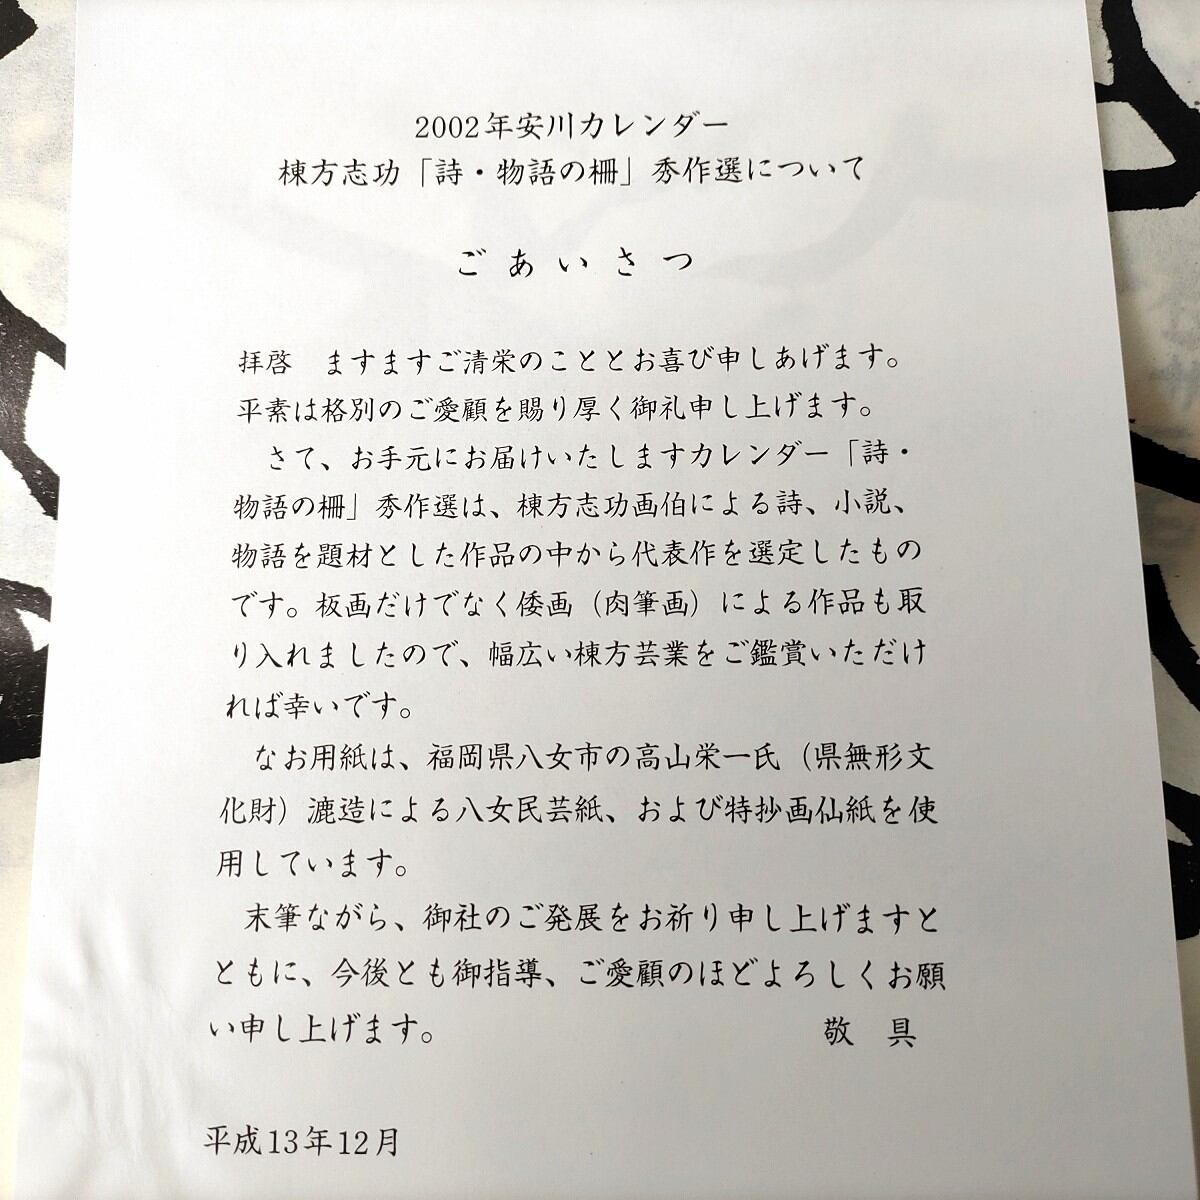 2002年安川カレンダー
棟方志功「詩・物語の柵」秀作選について
ごあいさつ
拝啓　ますますご清栄のこととお喜び申しあげます。
平素は格別のご愛顧を賜り厚く御礼申し上げます。
さて、お手元にお届けいたしますカレンダー「詩・
物語の柵」秀作選は、棟方志功画伯による詩、小説、
物語を題材とした作品の中から代表作を選定したもの
です。板画だけでなく倭画（肉筆画）による作品も取
り入れましたので、幅広い棟方芸業をご鑑賞いただけ
れば幸いです。
なお用紙は、福岡県八女市の高山栄一氏（県無形文
化財）漉造による八女民芸紙、および特抄画仙紙を使
用しています。
末筆ながら、御社のご発展をお祈り申し上げますと
ともに、今後とも御指導、ご愛顧のほどよろしくお願
い申し上げます。　敬　具
平成13年12月